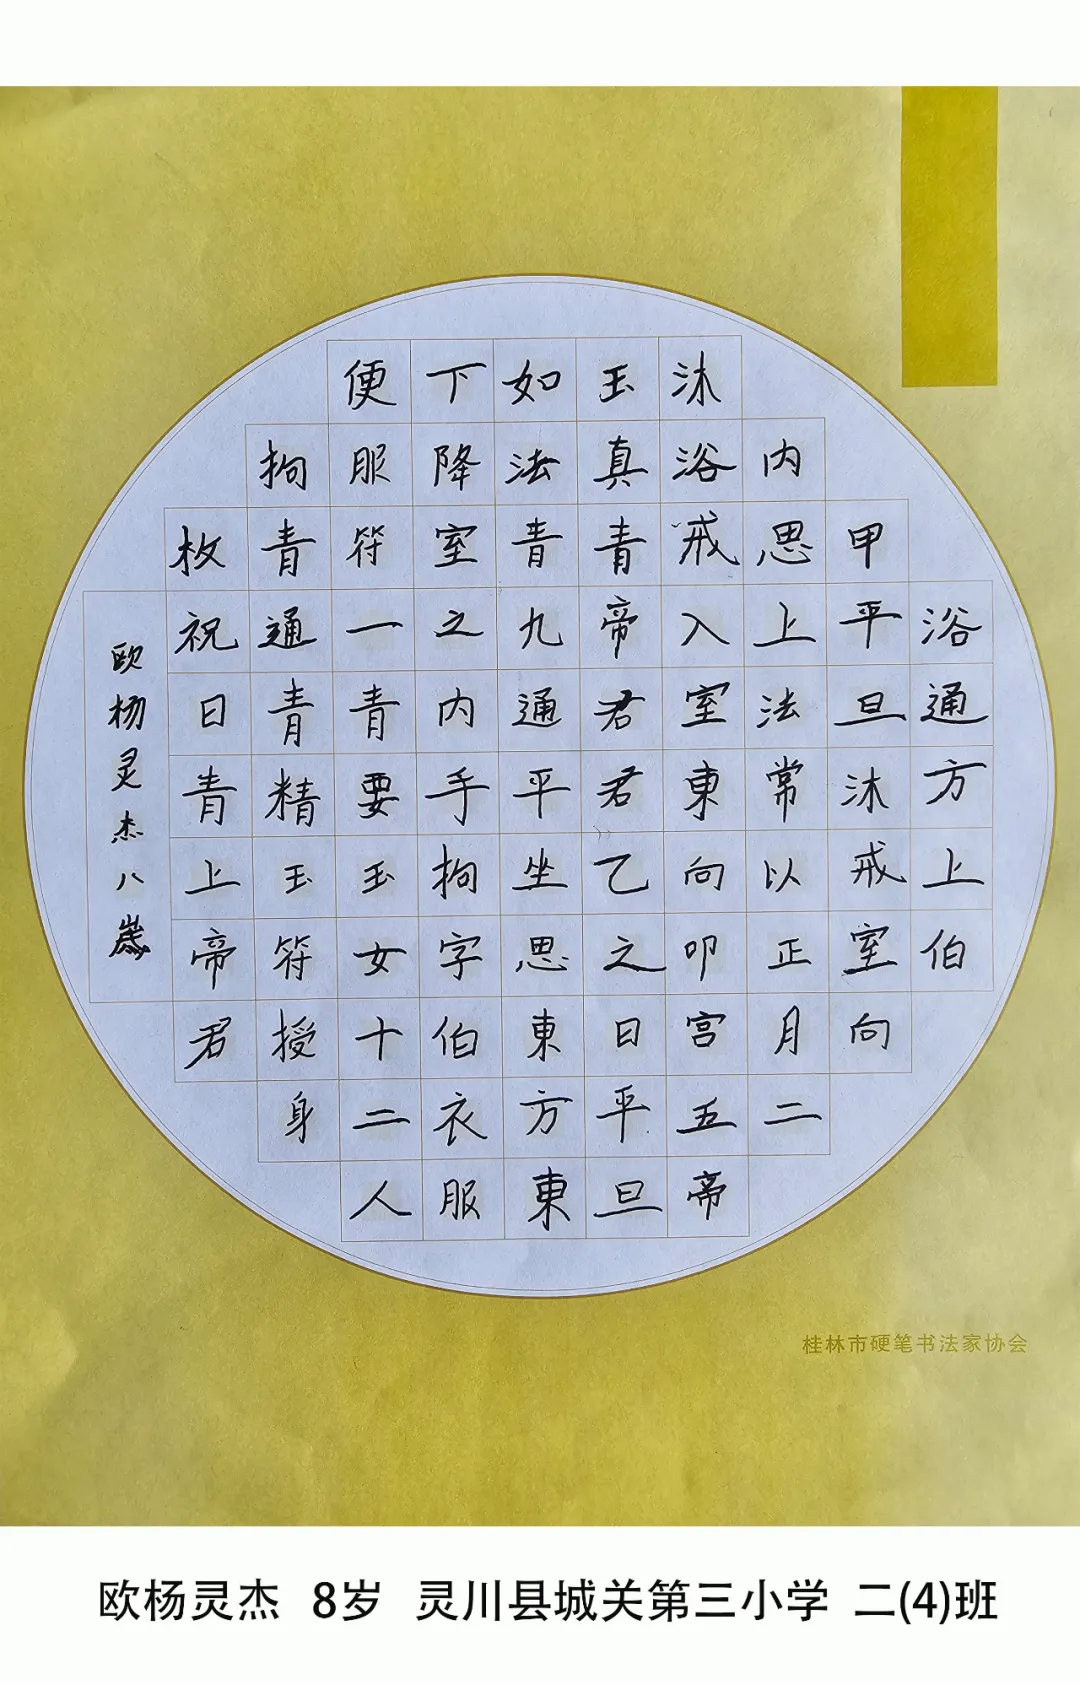 浴通方上伯
甲平旦沐戒室向
内思上法常以正月二
沐浴戒入室東向叩宫五帝
玉真青帝君君乙之日平旦
如法青九通平坐思東方東
下降室之内手拘字伯衣服
便服符一青要玉女十二人
拘青通青精玉符授身
枚祝日青上帝君
欧杨灵杰八歲
桂林市硬笔书法家协会
欧杨灵杰 8岁 灵川县城关第三小学 二(4)班